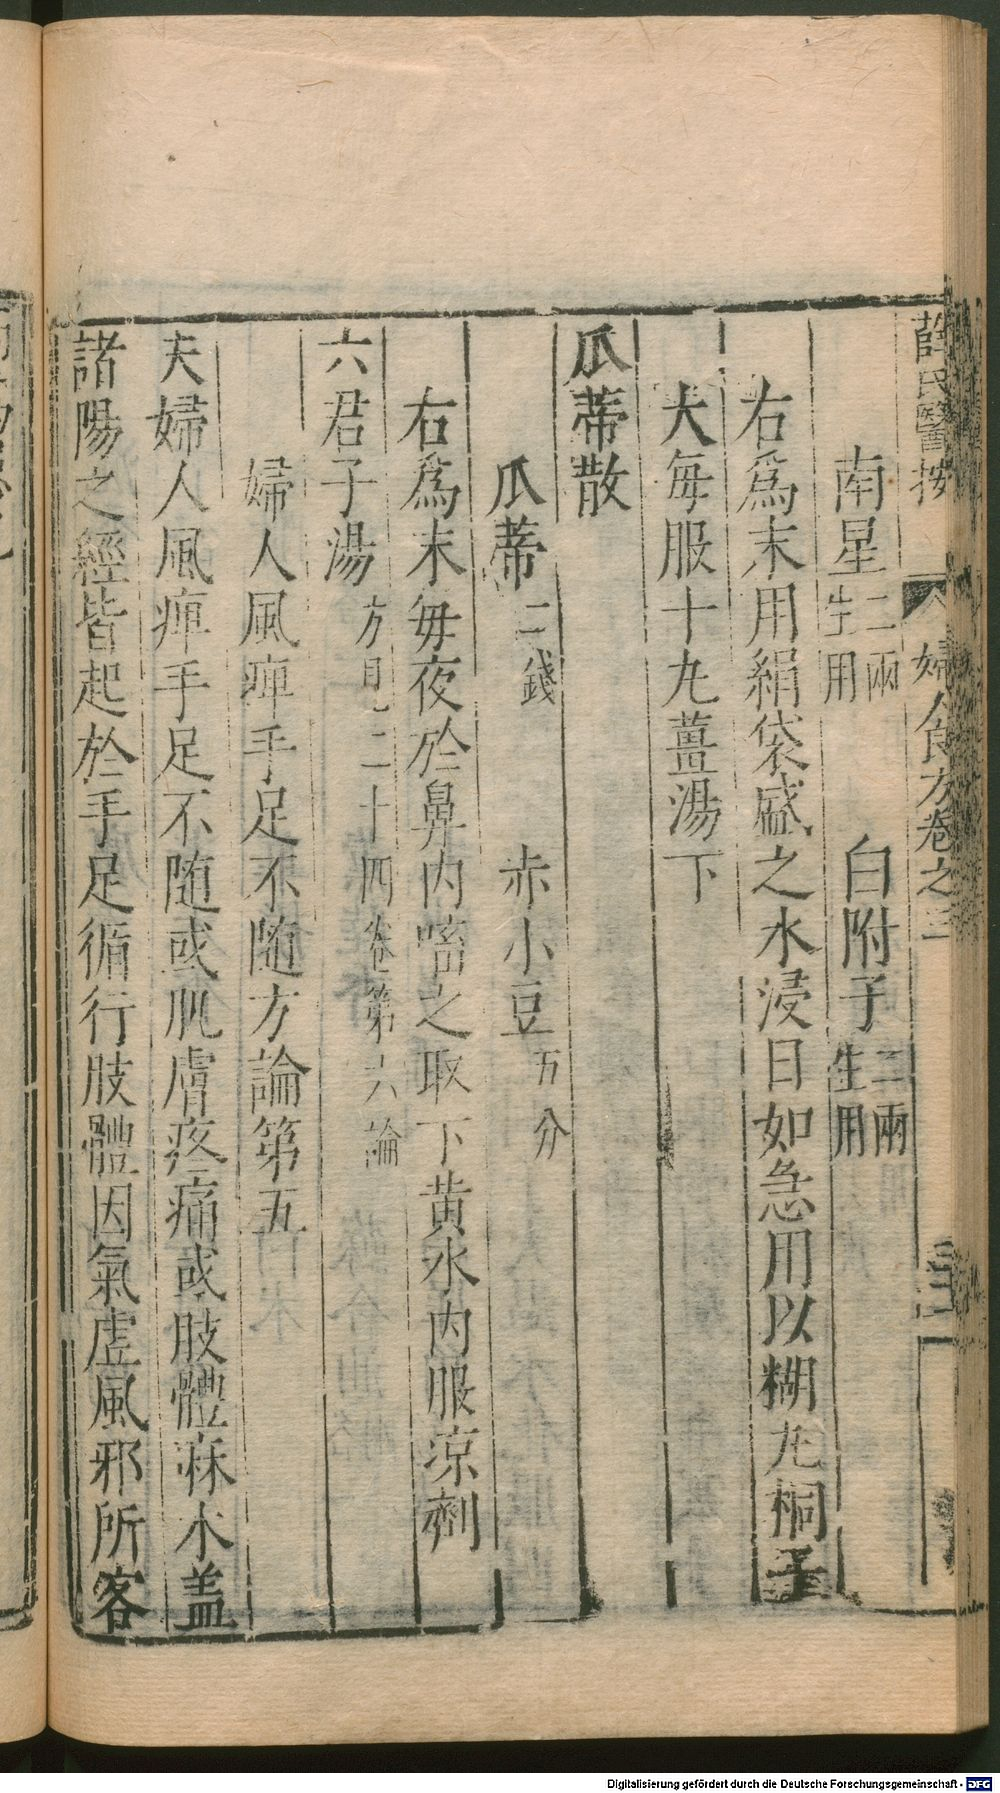 薛氏醫按 婦人良方卷之三
南星二兩生用 白附子二兩生用
右爲末用絹袋盛之水浸日如急用以糊丸桐子
大每服十丸薑湯下
瓜蒂散
瓜蒂二錢 赤小豆五分
右爲末每夜於鼻内㗜之取下黄水内服凉劑
六君子湯方見二十四卷第六論
婦人風痹手足不随方論第五
夫婦人風痹手足不随或肌膚疼痛或肢體痳木盖
諸陽之經皆起於手足循行肢體因氣虚風邪所客
Digitalisierung gefördert durch die Deutsche Forschungsgemeinschaft - DFG